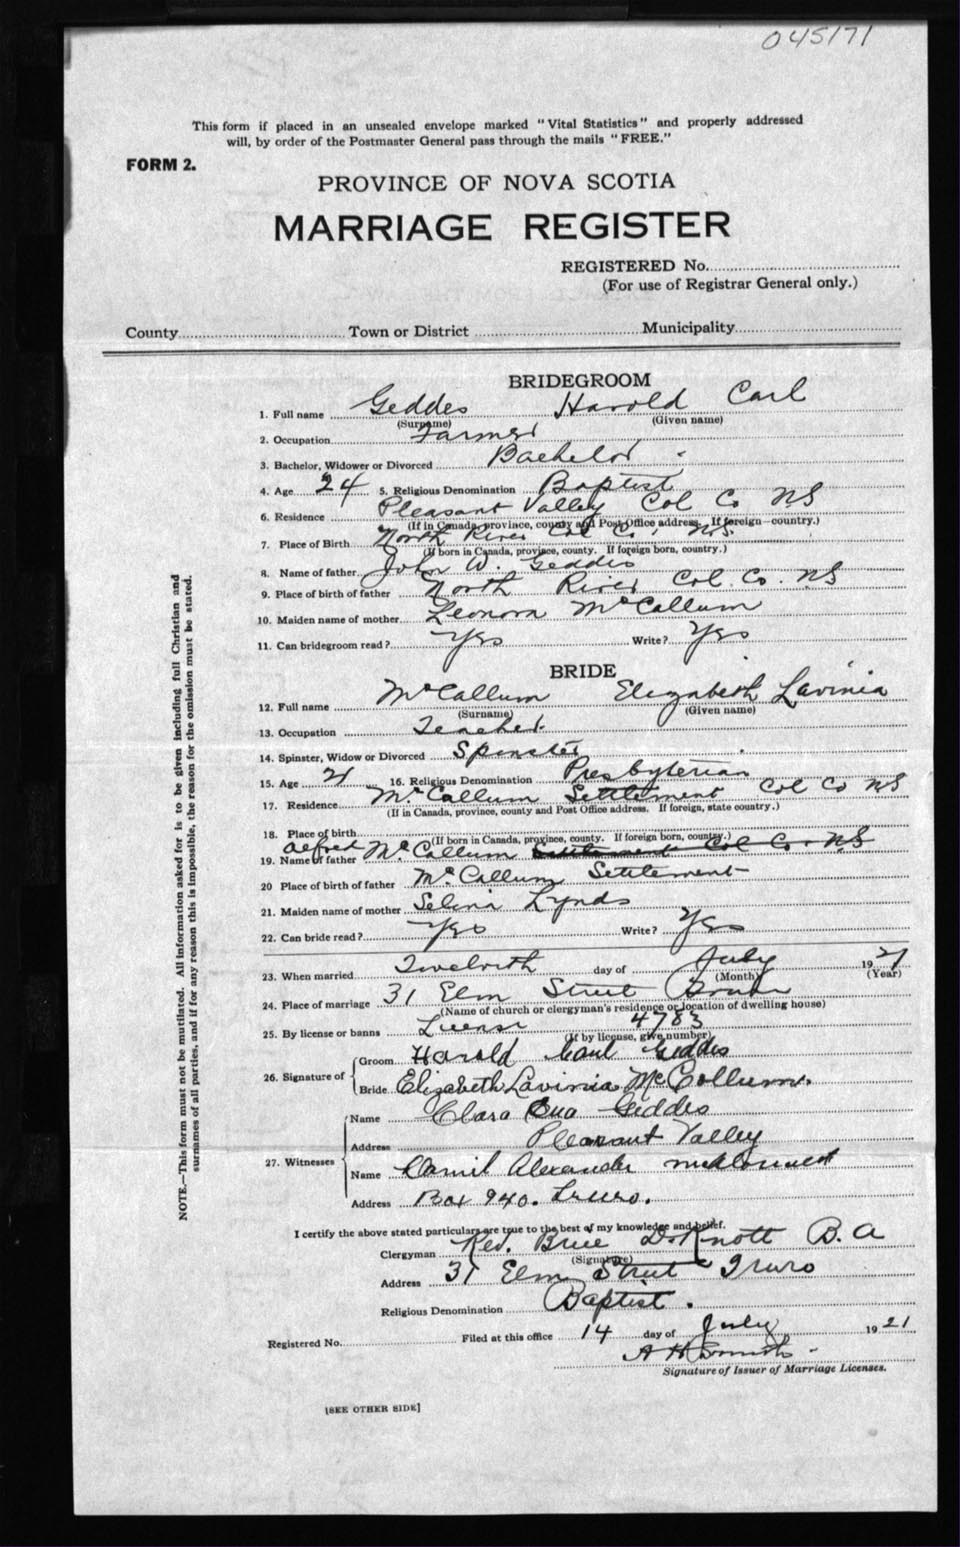 045171
This form if placed in an unsealed envelope marked "Vital Statistics" and properly addressed
will, by order of the Postmaster General pass through the mails "FREE."
FORM 2.
PROVINCE OF NOVA SCOTIA
MARRIAGE REGISTER
REGISTERED No.
(For use of Registrar General only.)
County Town or District Municipality
BRIDEGROOM
1. Full name Geddes Harold Carl
(Surname) (Given name)
2. Occupation Farmer
3. Bachelor, Widower or Divorced Bachelor
4. Age 24 5. Religious Denomination Baptist
6. Residence Pleasant Valley Col Co NS
(If in Canada, province, county and Post Office address. If foreign—country.)
7. Place of Birth North River Col Co, NS.
(If born in Canada, province, county. If foreign born, country.)
8. Name of father John W. Geddes
9. Place of birth of father North River Col. Co. NS
10. Maiden name of mother Leonora McCallum
11. Can bridegroom read? Yes Write? Yes
BRIDE
12. Full name McCallum Elizabeth Lavinia
(Surname) (Given name)
13. Occupation Teacher
14. Spinster, Widow or Divorced Spinster
15. Age 21 16. Religious Denomination Presbyterian
17. Residence McCallum Settlement Col Co NS
(If in Canada, province, county and Post Office address. If foreign, state country.)
18. Place of birth
(If born in Canada, province, county. If foreign born, country.)
19. Name of father Alfred McCallum Settlement Col Co. NS
20 Place of birth of father McCallum Settlement
21. Maiden name of mother Selina Lynds
22. Can bride read? Yes Write? Yes
23. When married Twelveth day of July 1921
(Month) (Year)
24. Place of marriage 31 Elm Street Truro
(Name of church or clergyman's residence or location of dwelling house)
25. By license or banns License 4783
(If by license, give number)
26. Signature of Groom Harold Carl Geddes
Bride Elizabeth Lavinia McCollum.
27. Witnesses Name Clara Geddes
Address Pleasant Valley
Name Alexander
Address Box 940. Truro.
I certify the above stated particulars are true to the best of my knowledge and belief.
Clergyman Rev. Knott B.A
(Signature)
Address 31 Elm Street Truro
Religious Denomination Baptist.
Registered No. Filed at this office 14 day of July 1921
A H Smith
Signature of Issuer of Marriage Licenses.
[SEE OTHER SIDE]
NOTE.—This form must not be mutilated. All information asked for is to be given including full Christian and
surnames of all parties, and if for any reason this is impossible, the reason for the omission must be stated.